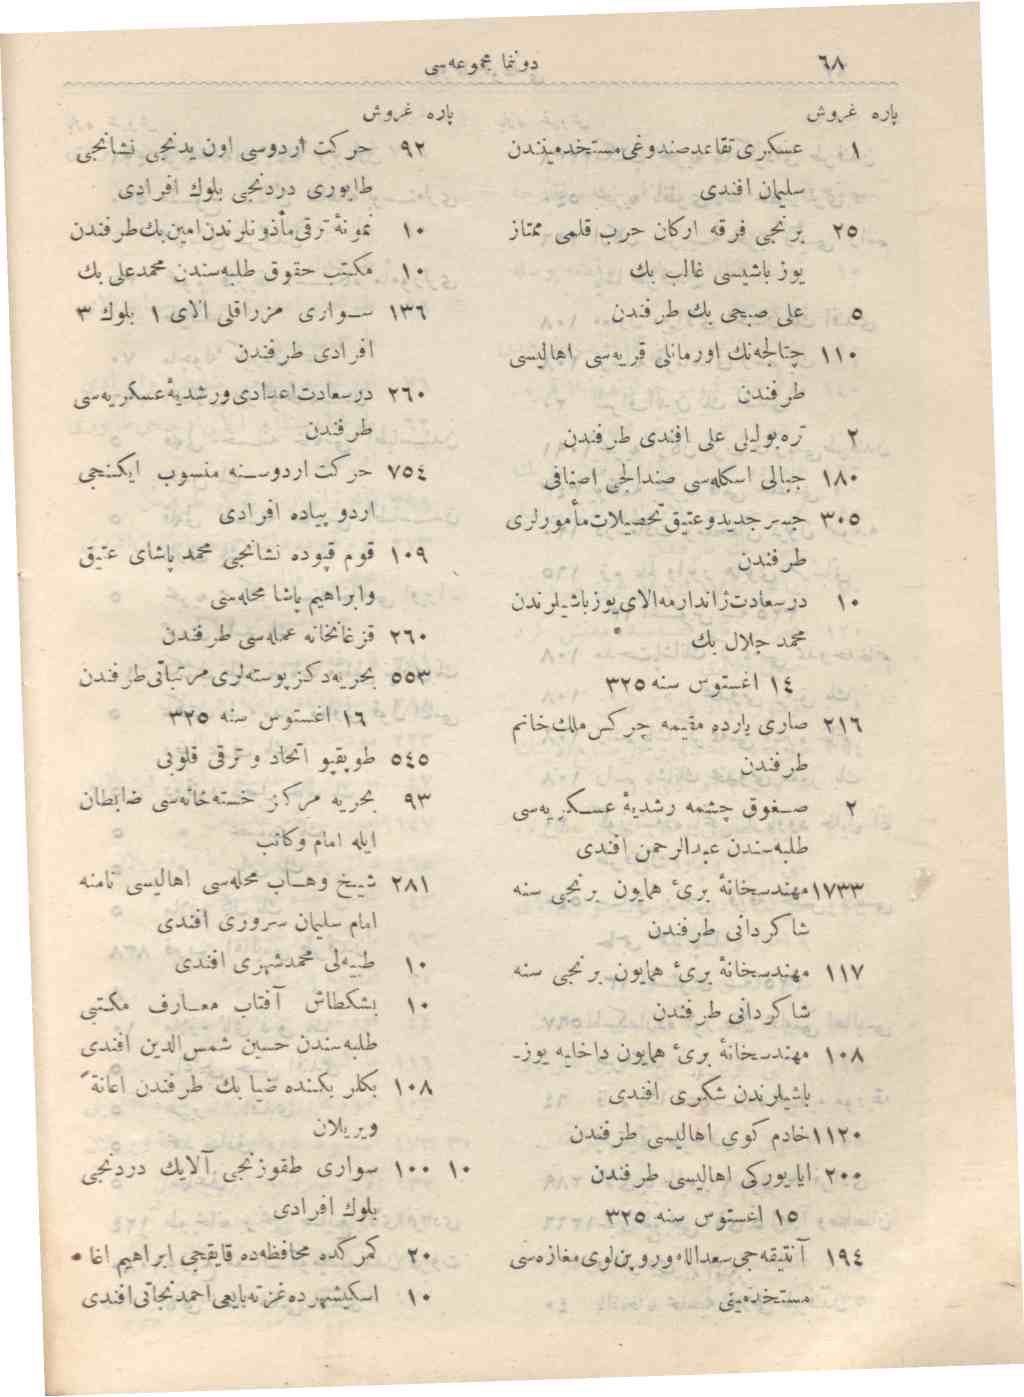 ٦٨
دونما مجموعه‌سی
پاره غروش
١ عسكری تقاعد صندوغی مستخدمیننن
سلیمان افندی
٢٥ برنجی فرقه اركان حرب قلمی ممتاز
یوز باشیسی غالب بك
٥ علی صبحی بك طرفندن
١١٠ چتالجه‌نك اورمانلی قریه‌سی اهالیسی
طرفندن
٢ تره‌بولیلی علی افندی طرفندن
١٨٠ جبالی اسكله‌سی صندالجی اصنافی
٣٠٥ جسر جدید و عتیق تحصیلات مأمورلری
طرفندن
١٠ درسعادت ژاندارمه الای یوزباشیلرندن
محمد جلال بك
١٤ اغستوس سنه ٣٢٥
٢١٦ صاری یارده مقیمه چركس ملك خانم
طرفندن
٢ صغوق چشمه رشدیهٔ عسكریه‌سی
طلبه‌سندن عبدالرحمن افندی
١٧٣٣ مهندسخانهٔ برئ همایون برنجی سنه
شاكردانی طرفندن
١١٧ مهندسخانهٔ برئ همایون برنجی سنه
شاكردانی طرفندن
١٠٨ مهندسخانهٔ برئ همایون داخلیه یوز-
باشیلرندن شكری افندی
١١٢٠ خادم كوی اهالیسی طرفندن
٢٠٠ ایا یوركی اهالیسی طرفندن
١٥ اغستوس سنه ٣٢٥
١٩٤ آنتیقه‌جی سعدالله و روبن لوی مغازه‌سی
مستخدمینی
پاره غروش
٩٢ حركت اردوسی اون یدنجی نشانجی
طابوری دردنجی بلوك افرادی
١٠ نمونهٔ ترقی مأذونلرندن امین بك طرفندن
١٠ مكتب حقوق طلبه‌سندن محمدعلی بك
١٣٦ سواری مزراقلی الای ١ بلوك ٣
افرادی طرفندن
٢٦٠ درسعادت اعدادی و رشدیهٔ عسكریه‌سی
طرفندن
٧٥٤ حركت اردوسنه منسوب ایكنجی
اردو پیاده افرادی
١٠٩ قوم قپوده نشانجی محمد پاشای عتیق
وابراهیم پاشا محله‌سی
٢٦٠ قزغانخانه عمله‌سی طرفندن
٥٥٣ بحریه‌دكز پوسته‌لری مرتباتی طرفندن
١٦ اغستوس سنه ٣٢٥
٥٤٥ طوپقپو اتحاد و ترقی قلوبی
٩٣ بحریه مركز خسته‌خانه‌سی ضابطان
ایله امام وكاتب
٢٨١ شیخ وهاب محله‌سی اهالیسی نامنه
امام سلیمان سروری افندی
١٠ طیبه‌لی محمدشهری افندی
١٠ بشكطاش آفتاب معارف مكتبی
طلبه‌سندن حسین شمس‌الدین افندی
١٠٨ بكلر بكنده ضیا بك طرفندن اعانةً
ویریلان
١٠ ١٠٠ سواری طقوزنجی آلایك دردنجی
بلوك افرادی
٢٠ كمركده محافظه‌ده قایقجی ابراهیم اغا
١٠ اسكیشهرده غزته بایعی احمد نجاتی افندی